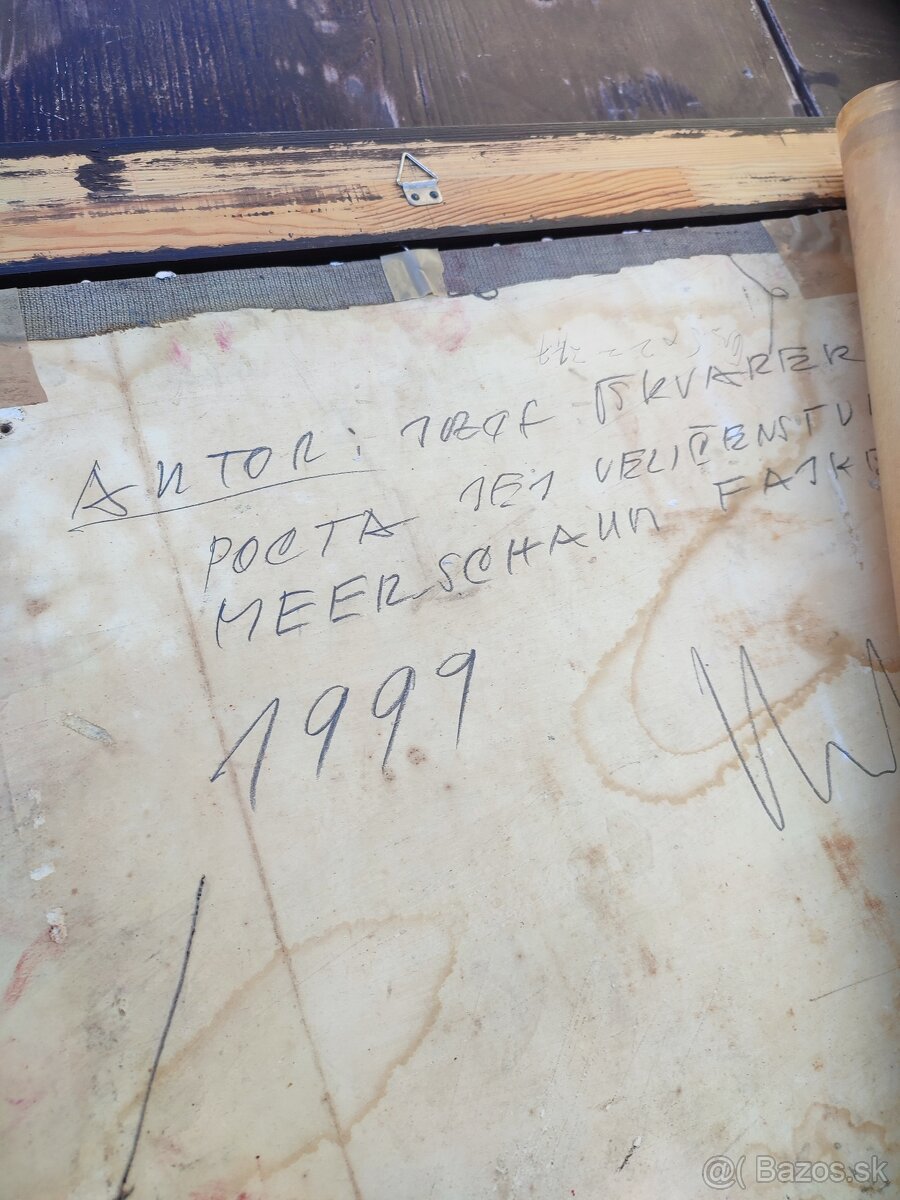 AUTOR: JOZEF ŠKVARER
POCTA JEJ VELIČENSTVU
MEERSCHAUM FAJKE
1999
@( Bazos.sk